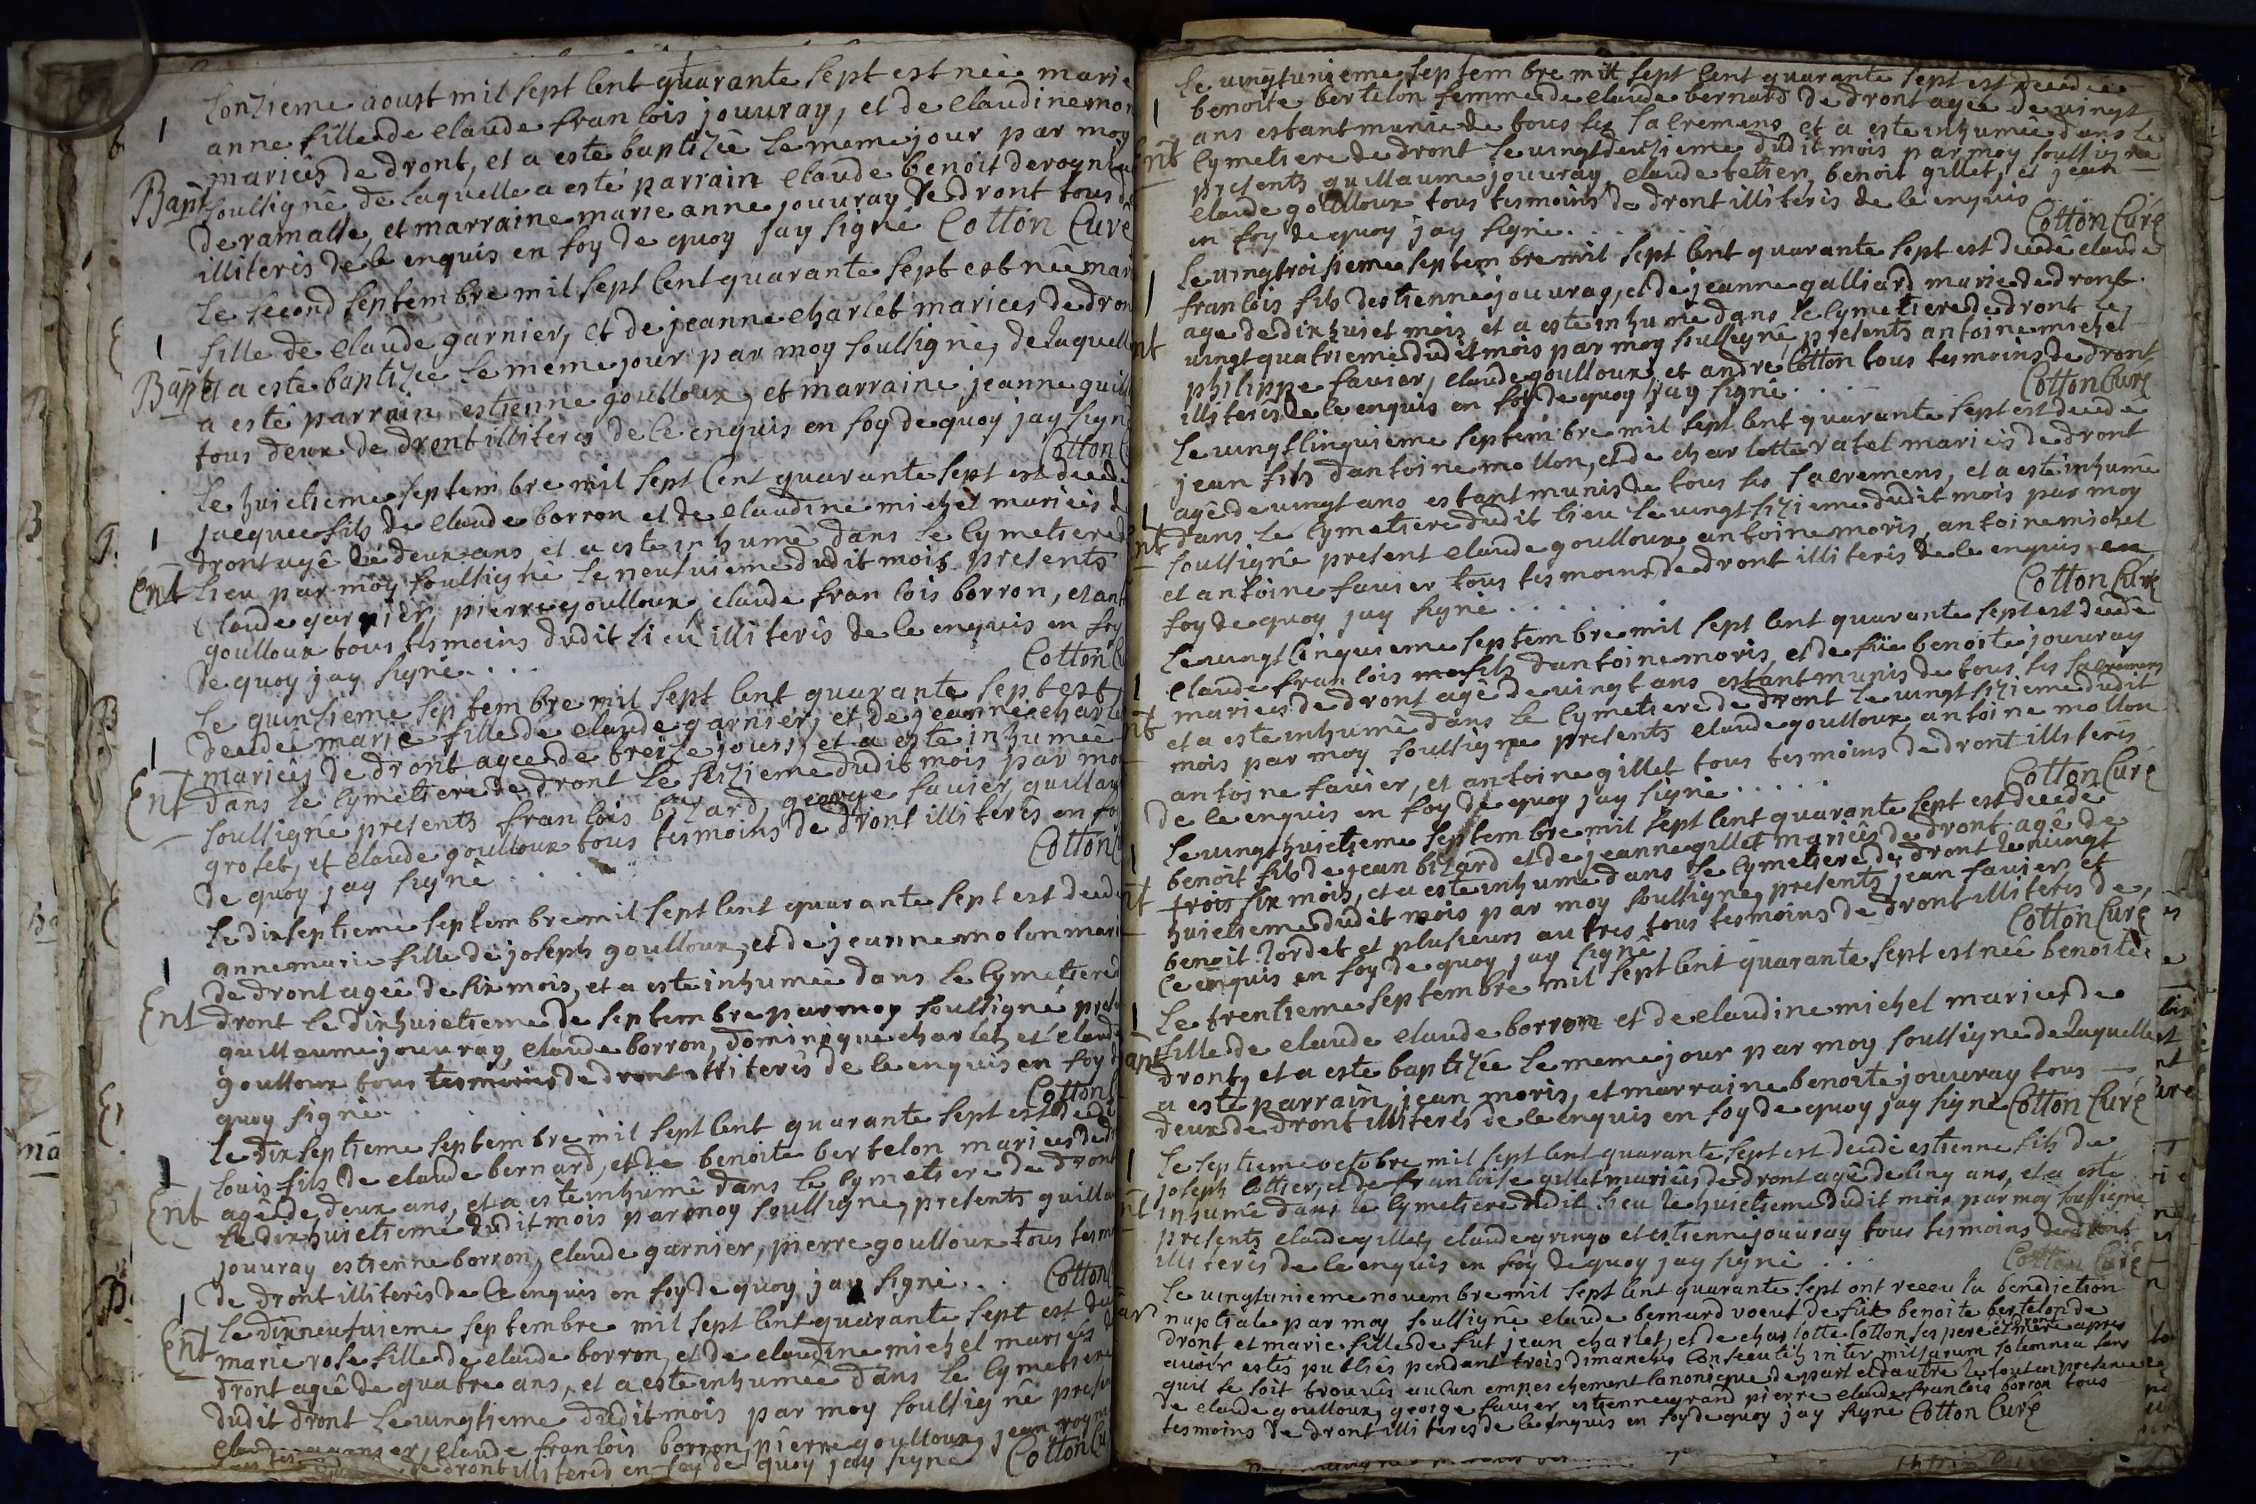 Lonzieme aoust mil sept Cent quarante sept est neé marie
anne fille de Claude francois jouuray, et de Claudine mor
mariés de dront, et a esté baptizeé le meme jour par moy
Bapt soussigné de laquelle a esté parrain Claude benoit deroyni
de ramasse, et marraine marie anne jouuray de dront tous d
illiterés de ce enquis en foy de quoy jay signé Cotton Curé
Le second septembre mil sept Cent quarante sept est neé mari
fille de Claude garnier, et de jeanne charlet mariees de dron
Bapt et a esté baptizeé le meme jour par moy soussigné, de laquell
a esté parrain estienne goulloux, et marraine jeanne guill
tous deux de dront illiterés de ce enquis en foy de quoy jay sign
Cotton C
Le huictieme septembre mil sept Cent quarante sept est decede
jacques fils de Claude borron et de Claudine michel mariées d
dront agé de deux ans et a esté inhumé dans le Cymetiere d
Ent lieu par moy soussigné le neufuieme dudit mois presents
Claude garnier, pierre goulloux, Claude francois borron, et ant
goulloux tous tesmoins dudit lieu illiterés de ce enquis en foy
de quoy jay signé . . .
Cotton Cu
Le quinsieme septembre mil sept Cent quarante sept est
decedeé marie fille de Claude garnier, et de jeanne charle
mariées de dront ageé de treize jours, et a esté inhumeé
Ent dans le Cymetiere de dront le sezieme dudit mois par mo
soussigné presents francois bizard, george fauier, guillau
groset, et Claude goulloux tous tesmoins de dront illiterés en fo
de quoy jay signé . . .
Cotton C
Le dixseptieme septembre mil sept Cent quarante sept est decede
anne marie fille de joseph goulloux, et de jeanne molon mari
de dront ageé de six mois, et a esté inhumeé dans le Cymetiere d
Ent dront le dixhuictieme de septembre par moy soussigné prese
guillaume jouuray, Claude borron, dominique charlet, et Claude
goulloux tous tesmoins de dront illiterés de ce enquis en foy d
quoy signé
Cotton C
Le dixseptieme septembre mil sept Cent quarante sept est decedé
Louis fils de Claude bernard, et de benoite bertelon mariees de d
Ent agé de deux ans, et a esté inhumé dans le Cymetiere de dront
le dixhuictieme dudit mois par moy soussigné, presents guillau
jouuray estienne borron, Claude garnier, pierre goulloux tous tesm
de dront illiterés de ce enquis en foy de quoy jay signé . . Cotton C
Le dixneufuieme septembre mil sept Cent quarante sept est de
Ent marie rose fille de Claude borron, et de Claudine michel mariés d
dront ageé de quatre ans, et a esté inhumeé dans le Cymetiere
dudit dront le vingtieme dudit mois par moy soussigné prese
Claude garnier, Claude francois borron, pierre goulloux, jean royni
de dront illiterés en foy de quoy jay signé Cotton Cu
Le vingtunieme septembre mil sept Cent quarante sept est decedeé
benoite bertelon femme de Claude bernard de dront ageé de vingt
ans estant munie de tous les Sacremens et a esté inhumeé dans le
Ent Cymetiere de dront le vingtdeuzieme dudit mois par moy soussigné
presents guillaume jouuray, Claude tetier, benoit gillet, et jean
Claude goulloux tous tesmoins de dront illiterés de ce enquis
en foy de quoy jay signé. . . . Cotton Curé
Le vingtroisieme septembre mil sept Cent quarante sept est decedé Claude
francois fils destienne jouuray, et de jeanne galliard mariés de dront.
agé de dixhuict mois et a esté inhumé dans le Cymetiere de dront le
nt vingtquatrieme dudit mois par moy soussigné, presents antoine michel
philippe fauier, Claude goulloux, et andré Cotton tous tesmoins de dront
illiterés de ce enquis en foy de quoy jay signé . . . Cotton Curé
Le vingtcinquieme septembre mil sept Cent quarante sept est decedé
jean fils dantoine mollon, et de charlotte ratel mariés de dront
agé de vingt ans estant munis de tous les Sacremens, et a esté inhumé
nt dans le Cymetiere dudit lieu le vingt sizieme dudit mois par moy
soussigné present Claude goulloux, antoine moris, antoine michel
et antoine fauier tous tesmoins de dront illiterés de ce enquis en
foy de quoy jay signé . . . . . . Cotton Curé
Le vingtcinquieme septembre mil sept Cent quarante sept est decedé
Claude francois fils dantoine moris, et de füe benoite jouuray
mariees de dront agé de vingt ans estant munis de tous les Sacremens
nt et a esté inhumé dans le Cymetiere de dront le vingt sizieme dudit
mois par moy soussigné presents Claude goulloux, antoine mollon
antoine fauier, et antoine gillet tous tesmoins de dront illiterés
de ce enquis en foy de quoy jay signé . . . . . Cotton Curé
Le vingthuictieme septembre mil sept Cent quarante sept est decedé
benoit fils de jean bizard et de jeanne gillet mariés de dront agé de
nt trois six mois, et a esté inhumé dans le Cymetiere de dront le vingt
huictieme dudit mois par moy soussigné, presents jean fauier, et
benoit Jordet et plusieurs autres tous tesmoins de dront illiterés de,
ce enquis en foy de quoy jay signé Cotton Curé
Le trentieme septembre mil sept Cent quarante sept est neé benoite
fille de Claude Claude borron et de Claudine michel mariees de
apt dront, et a esté baptizeé le meme jour par moy soussigné de laquelle
a esté parrain jean moris, et marraine benoite jouuray tous
deux de dront illiterés de ce enquis en foy de quoy jay signé Cotton Curé
Le septieme octobre mil sept Cent quarante sept est decedé estienne fils de
joseph Cottier, et de francoise gillet mariés de dront agé de Cinq ans, et a esté
nt inhumé dans le Cymetiere dudit lieu le huictieme dudit mois par moy soussigné
presents Claude gillet, Claude gringo et estienne jouuray tous tesmoins de dront
illiterés de ce enquis en foy de quoy jay signé . . . Cotton Curé
Le vingtunieme nouembre mil sept Cent quarante sept ont receu la benediction
ar nuptiale par moy soussigné Claude bernard voeuf de füe benoite bertelon de
dront et marie fille de fut jean charlet, et de charlotte Cotton ses pere et mere apres
auoir estés publiés pendant trois dimanches Consecutifs inter missarum solemnia sans
quil se soit trouués aucun empeschement Canonique de part et dautre le tout en presence
de Claude goulloux, george fauier estienne grand pierre Claude francois borron tous
tesmoins de dront illiterés de ce enquis en foy de quoy jay signé Cotton Curé